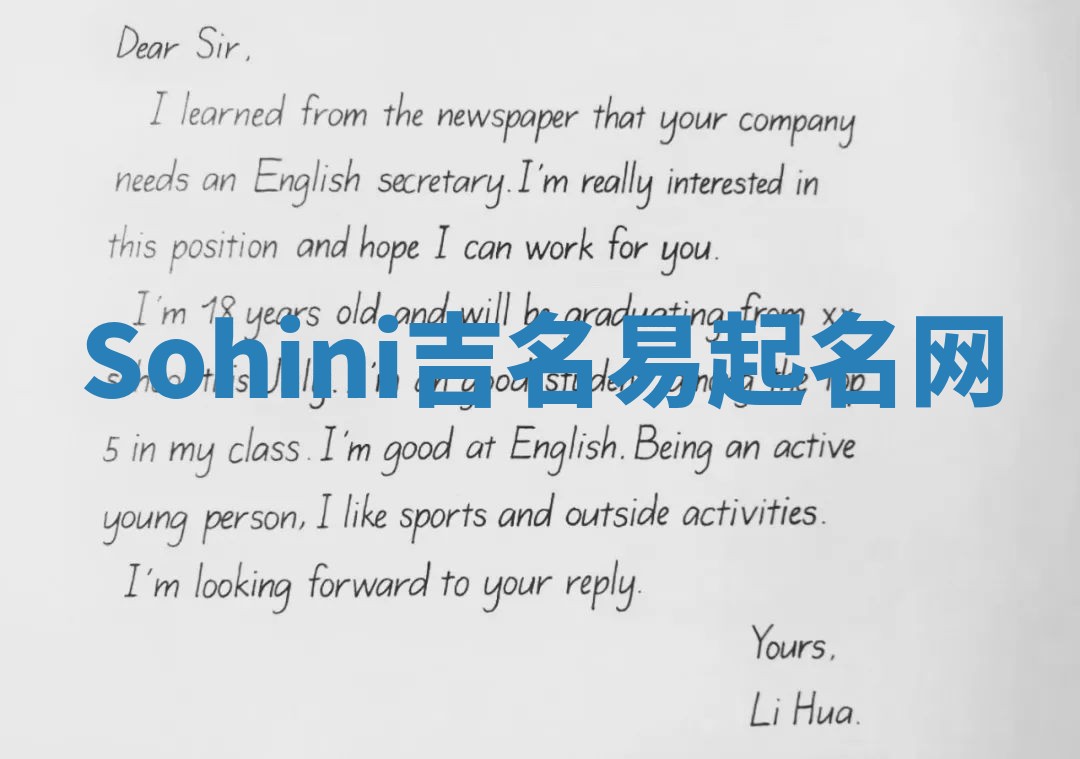 Dear Sir,
I learned from the newspaper that your company
needs an English secretary. I'm really interested in
this position and hope I can work for you.
I'm 18 years old and will be graduating from xx
Sohini吉名易起名网
this July. I'm an good student among the Top
5 in my class. I'm good at English. Being an active
young person, I like sports and outside activities.
I'm looking forward to your reply.
Yours,
Li Hua.